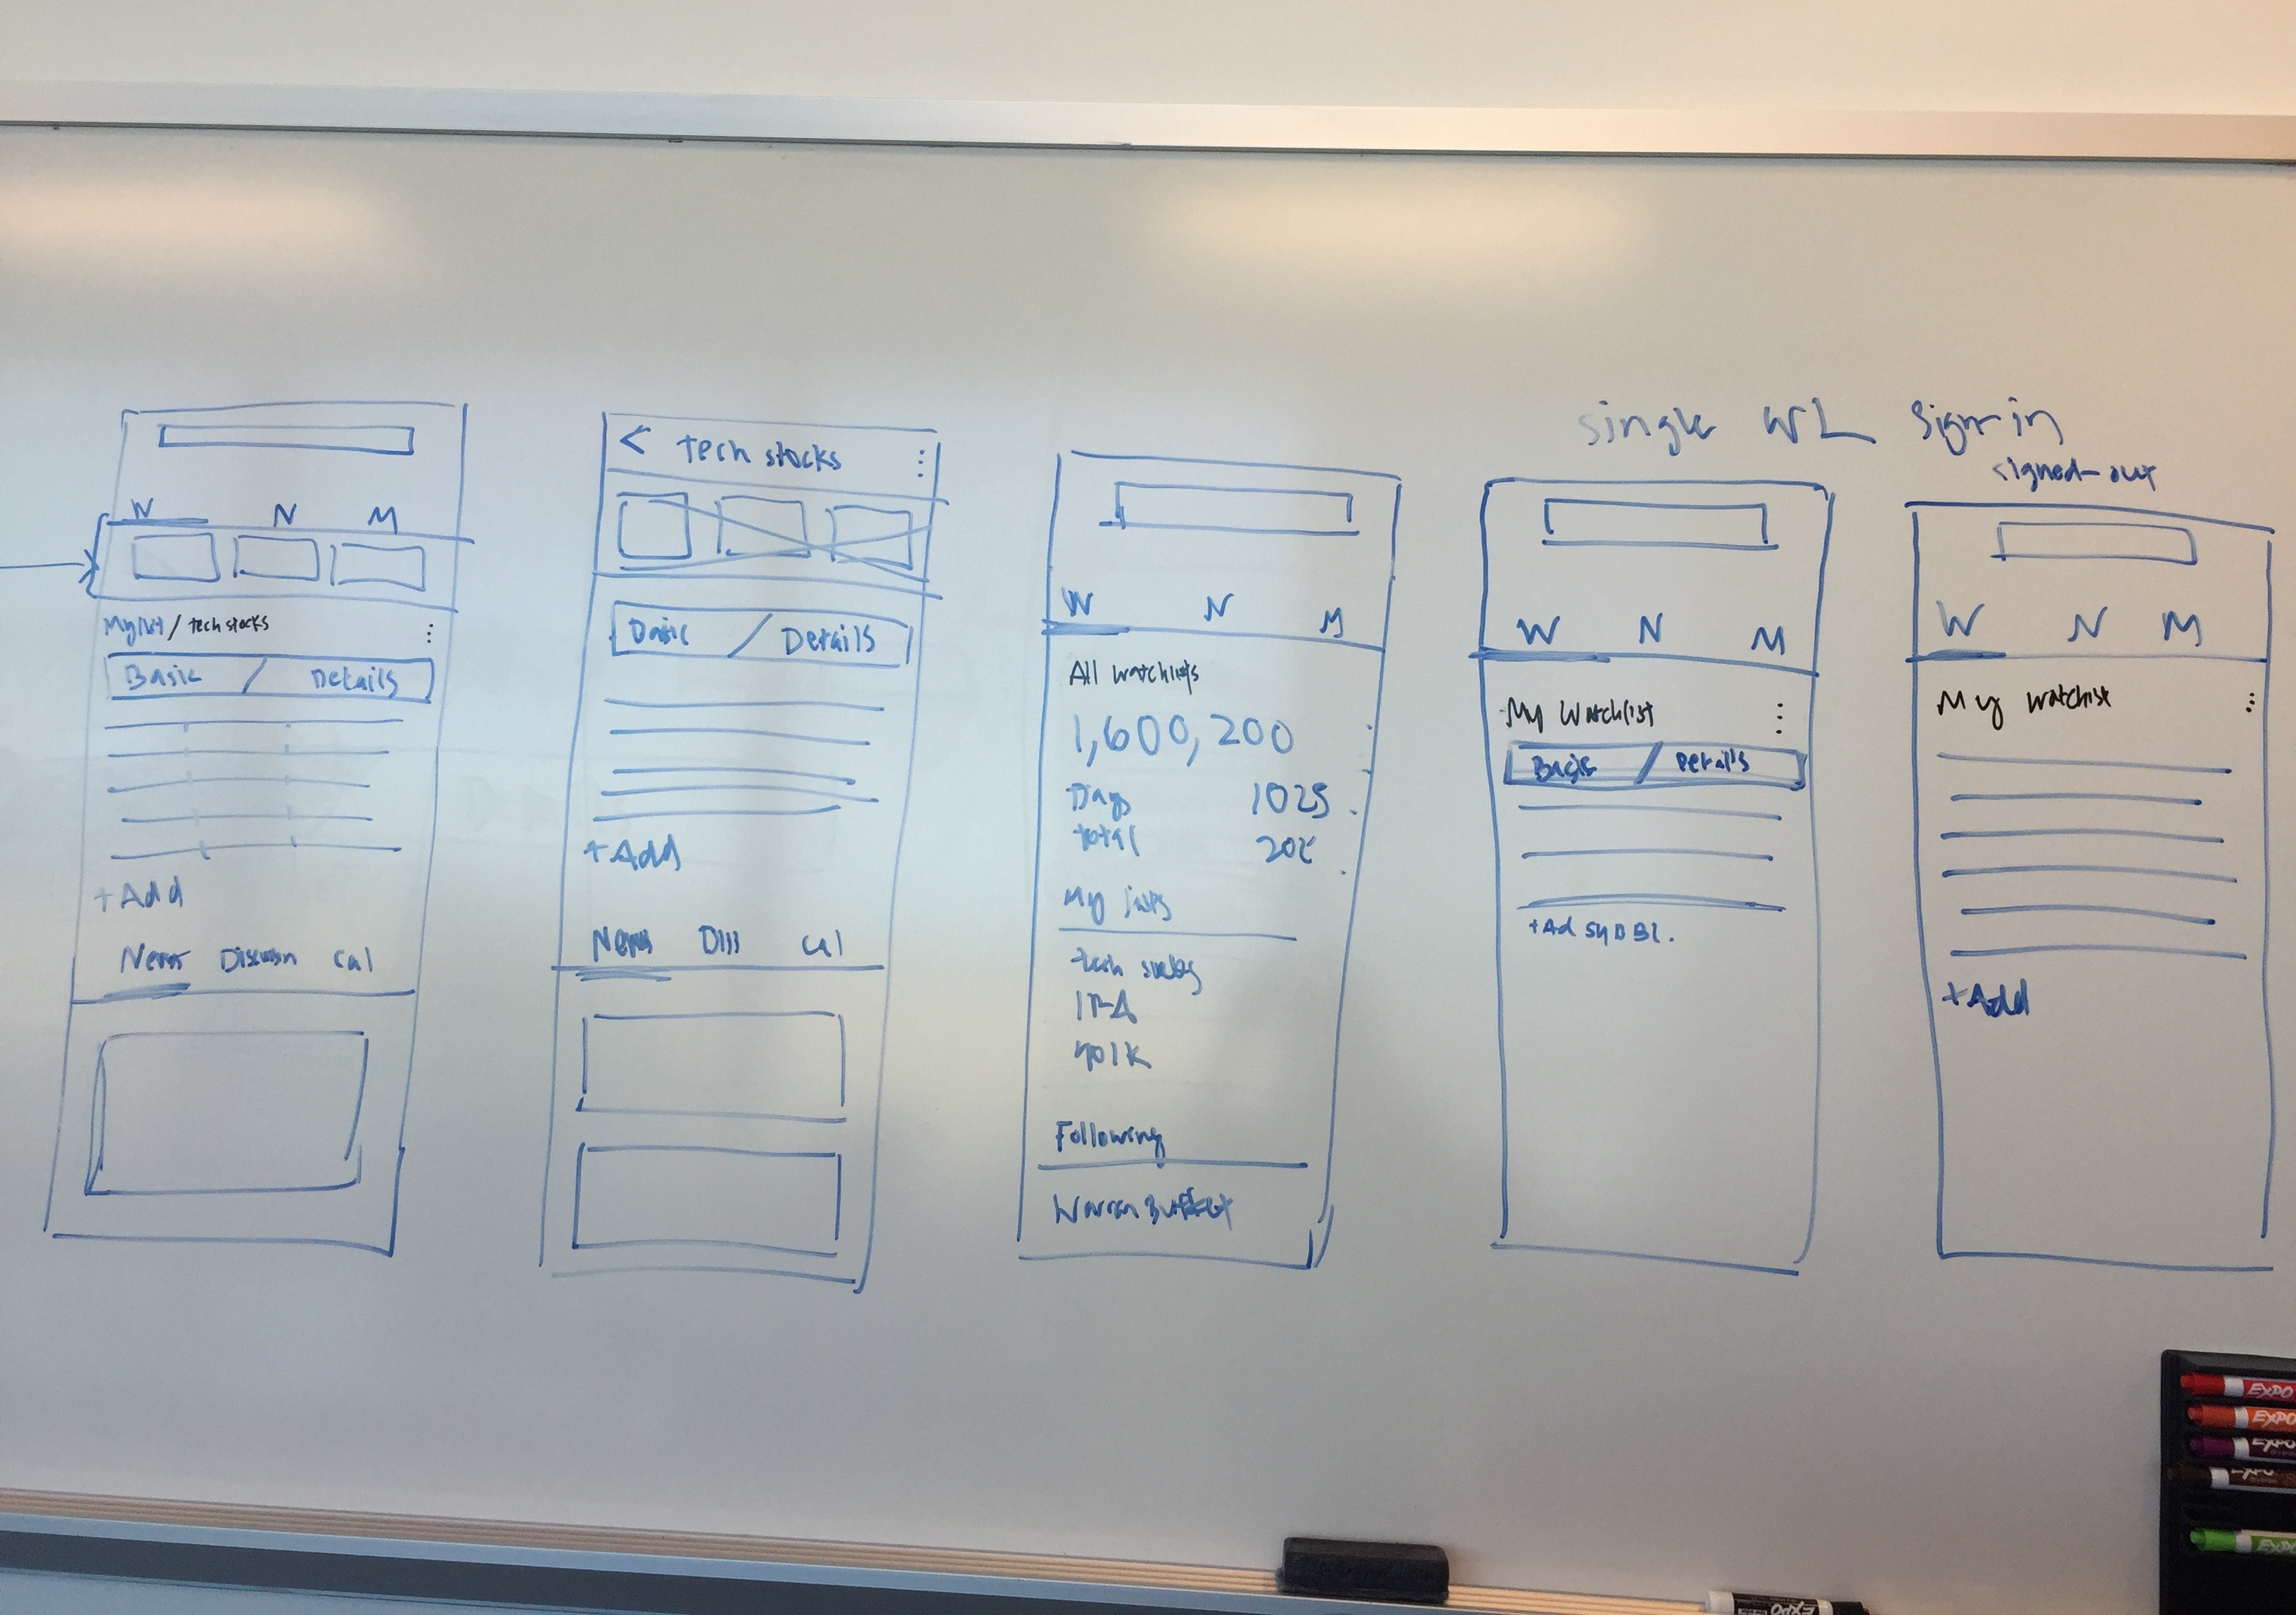 W N M
My list / tech stocks
Basic / Details
+ Add
News Discussn Cal
< tech stocks
Basic / Details
+ Add
News Diss Cal
W N M
All watchlists
1,600,200
Days 1025
total 202
My lists
tech stocks
IRA
401K
Following
Warren Buffket
single WL sign-in
W N M
My Watchlist
Basic / Details
+ Ad
signed-out
W N M
My Watchlist
+ Add
EXPO
EXPO
EXPO
EXPO
EXPO
EXPO